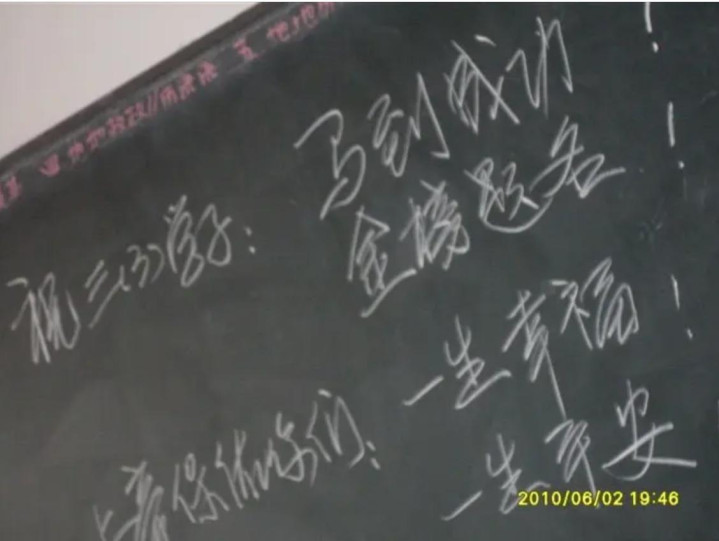 马到成功!
祝三(3)学子: 金榜题名!
一生幸福!
上帝保佑你们: 一生平安
2010/06/02 19:46